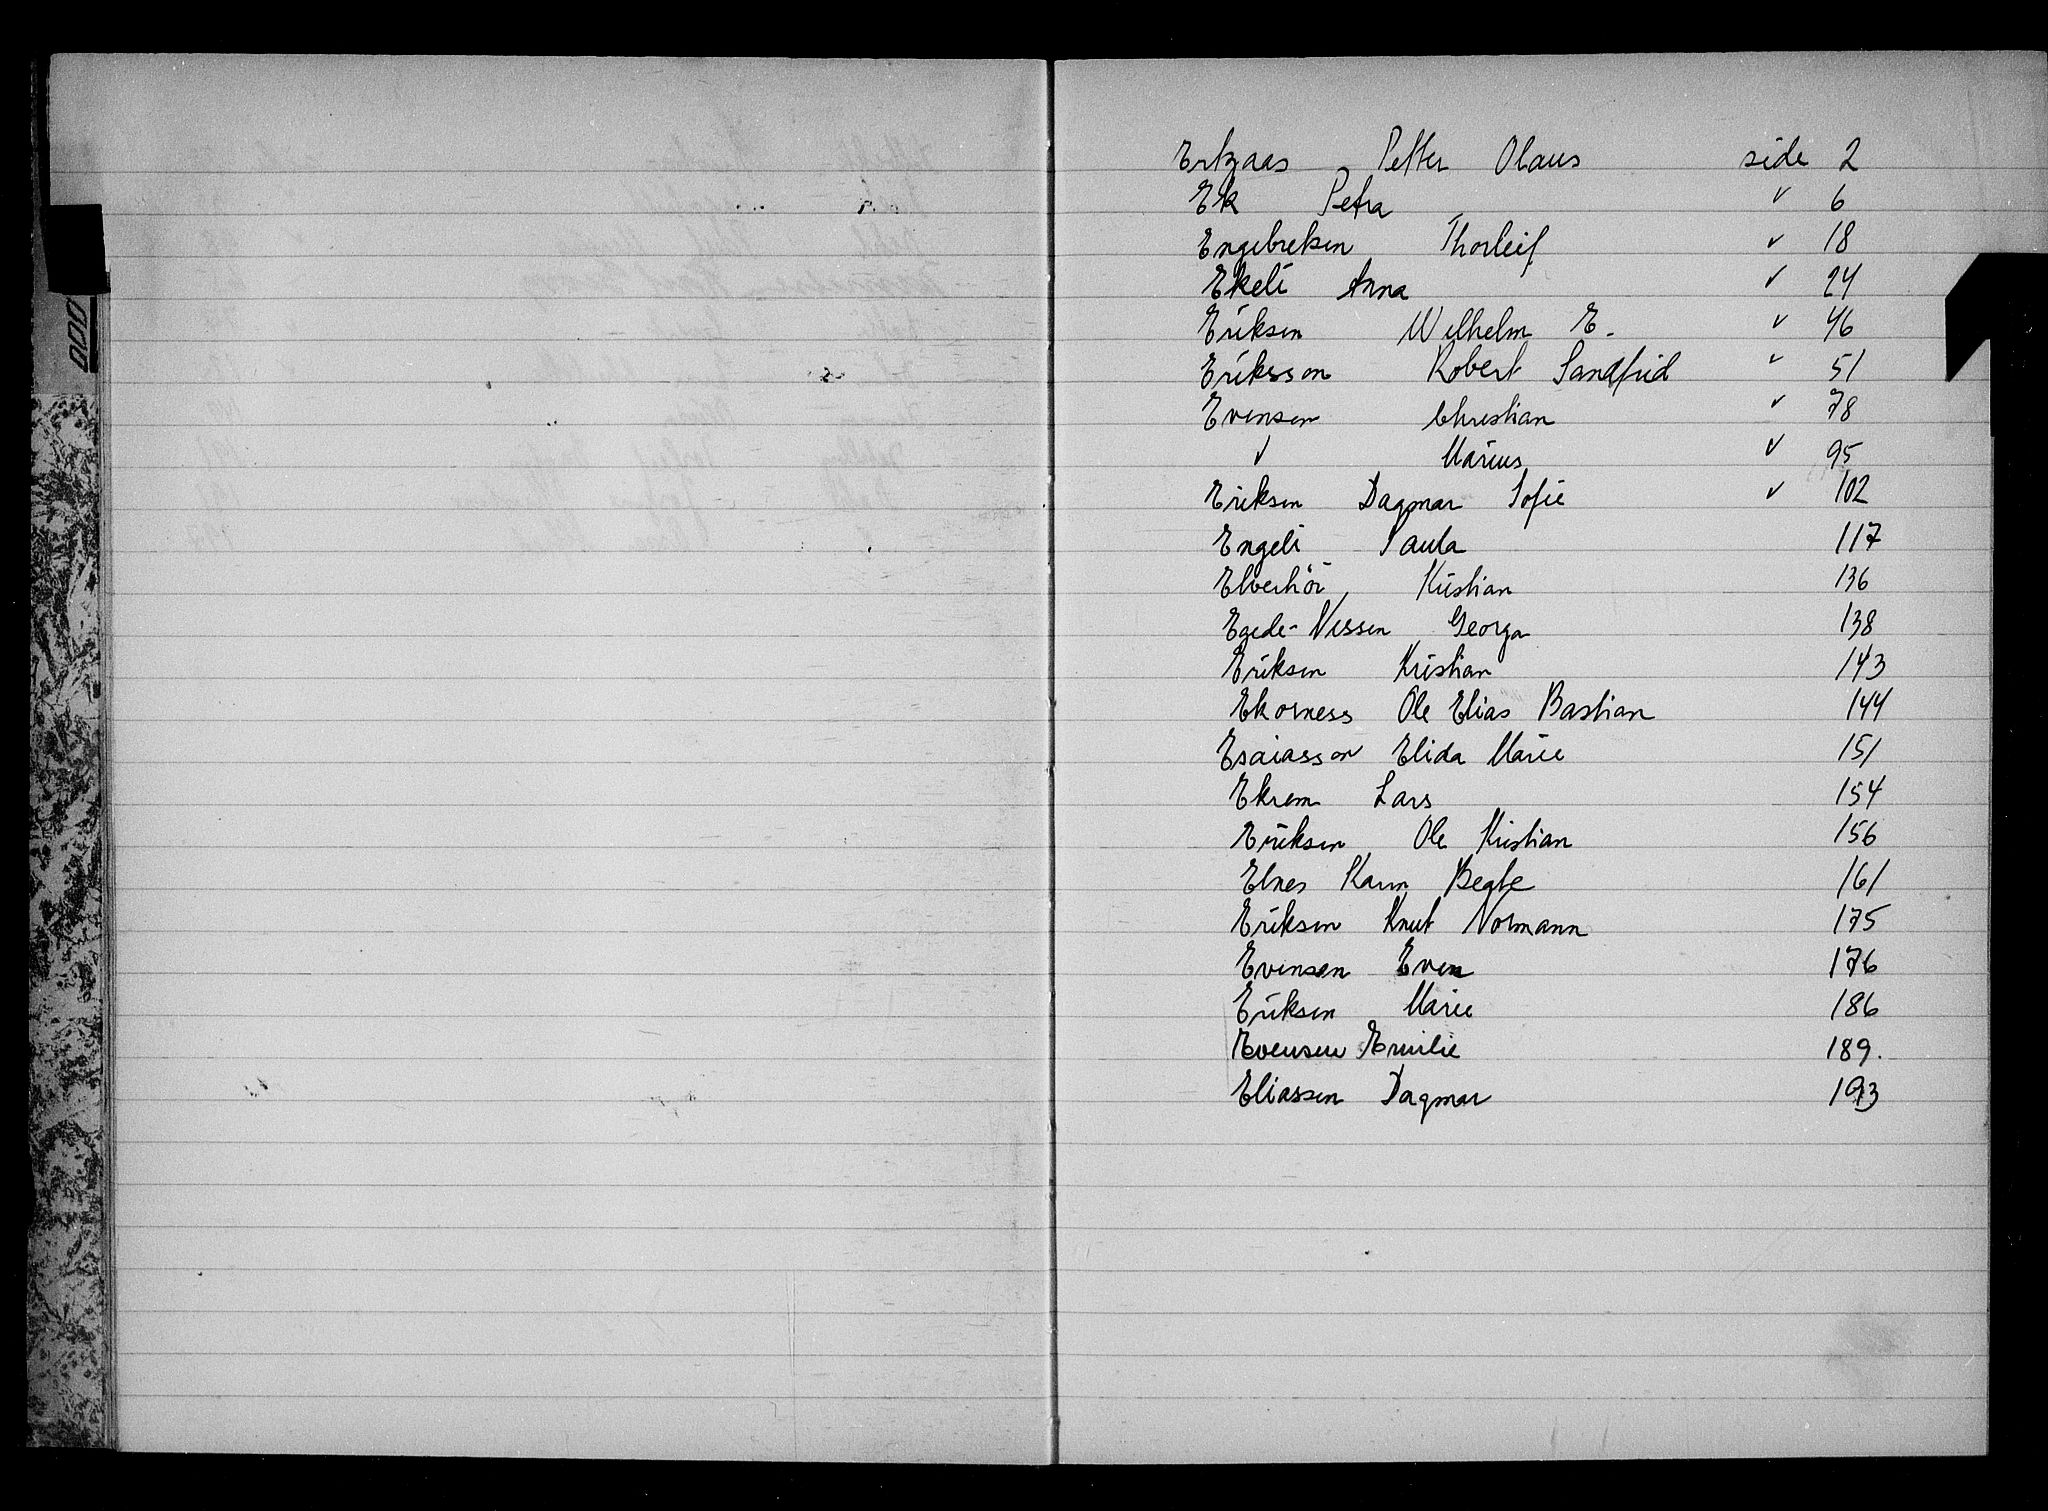 Ertzaas Petter Olaus side 2
Ek Petra ✓ 6
Engebretsen Thorleif ✓ 18
Ekeli Anna ✓ 24
Eriksen Wilhelm E. ✓ 46
Eriksson Robert Sandfrid ✓ 51
Evensen Christian ✓ 78
✓ Marius ✓ 95
Eriksen Dagmar Sofie ✓ 102
Engeli Paula 117
Elverhöi Kristian 136
Egede-Nissen Georga 138
Eriksen Kristian 143
Ekorness Ole Elias Bastian 144
Esaiasson Elida Marie 151
Ekrem Lars 154
Eriksen Ole Kristian 156
Elnes Karen Beate 161
Eriksen Knut Normann 175
Evensen Even 176
Eriksen Marie 186
Evensen Emilie 189.
Eliassen Dagmar 193